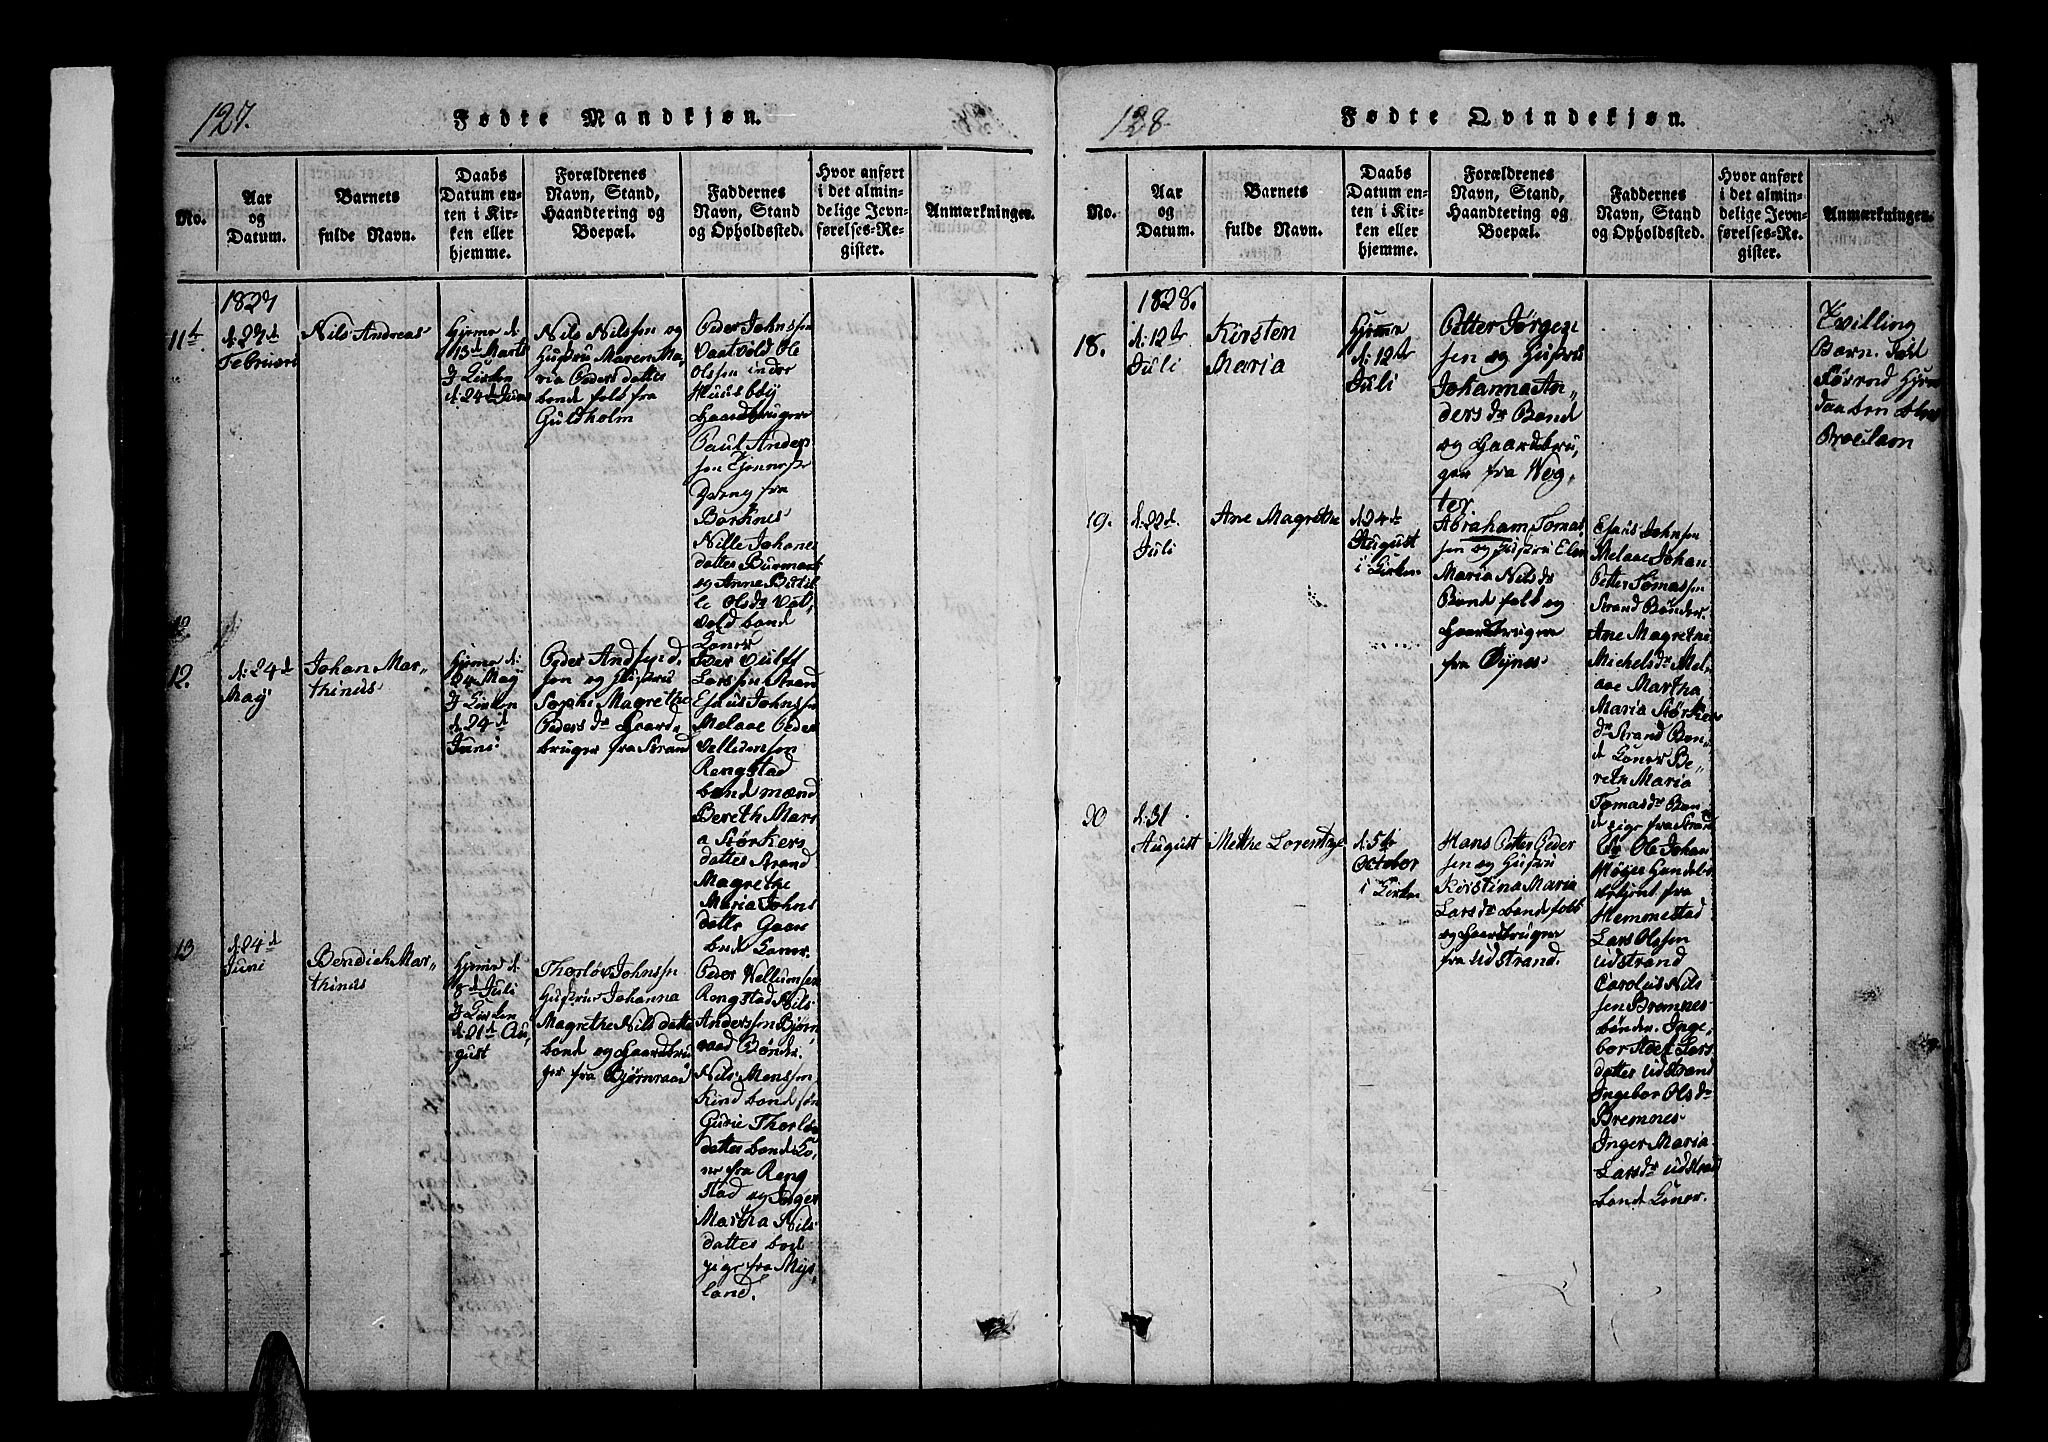 127.
Fødte Mandkjøn.
No.
Aar
og
Datum.
Barnets
fulde Navn.
Daabs
Datum en-
ten i Kir-
ken eller
hjemme.
Forældrenes
Navn, Stand,
Haandtering og
Boepæl.
Faddernes
Navn, Stand
og Opholdssted.
Hvor anført
i det almin-
delige Jevn-
førelses-Re-
gister.
Anmærkninger.
1827
11t.
d: 27d
Februari
Nils Andreas
Hjeme d
13d Marts
I Kirken
d. 24d Juni
Nils Nilssen og
Hustru Maren Ma-
ria Peders datter
bonde folk fra
Guldholm
Peder Johnssen
Vaatvold Ole
Olssen indre
Huusbbÿ
Gaardbrugere
Paul Anders
sen Tjeneste
Dreng fra
Borknes
Nille Johanes
datter Burmark
og Anne
Olsdr Vat,
vold bonde
Koner
12.
12.
d: 24d
Maÿ
Johan Mar-
thinus
Hjeme d:
24 Maÿ
I Kirken
d. 24d
Juni
Peder Andfind
sen og Hustru
Sophi Magrethe
Peders dr Gaard
bruger fra Strand
Per Vulff
Larssen Strand
Esaus Johnssen
Melaae Peder
Vellumsen
Rengstad
bonde mænd
Bereth Mari
a Størkers
datter Strand
Magrethe
Maria Johns
datter Gaan
bonde Koner
13
d: 24d
Juni
Bendich Mar-
thinus
Hjeme d
8d Juli
I Kirken
d. 21d Au,
gust
Thorlöv Johnssen
Hustrue Johanna
Magrethe Nils datter
bonde og Gaardbru
ger fra Bjørnraad
Peder Vellumsen
Rengstad Nils
Anderssen Bjørn
raad Bønder.
Nils Monssen
Kind bonde søn
Gurie Thorlös
datter bonde Ko,
ne fra Reng
stad og Inger
Martha Nils
datter bonde
pige fra Mÿs
land.
128.
Fødte Qvindekjøn.
No.
Aar
og
Datum.
Barnets
fulde Navn.
Daabs
Datum en-
ten i Kir-
ken eller
hjemme.
Forældrenes
Navn, Stand,
Haandtering og
Boepæl.
Faddernes
Navn, Stand
og Opholdssted.
Hvor anført
i det almin-
delige Jevn-
førelses-Re-
gister.
Anmærkninger.
1828.
18.
d: 12te
Juli
Kirsten
Maria
Hjeme
d: 12te
Juli
Petter Jørgen
sen og Hustru
Johanna An-
ders dr Bonde
og Gaardbru,
ger fra Veg-
ter.
Tvilling
Barn. Død
Førend Hjem
Daaben blev
19.
d: 22d.
Juli
Ane Magrethe
d: 24de
August
i Kirken
Abraham Tomas
sen og Hustru Elen
Maria Nilsdr
Bonde folk og
Gaardbruger
fra Öÿnes
Esaus Johnsen
Melaae Johan
Petter Tomassen
Strand Bönder
Ane Magrethe
Michelsdr Mel-
aae Martha
Maria Størkers
dr Strand Bon-
de Koner Be-
reth Maria
Tomasdr Bon
de pige fra Strand
20
d: 31
August
Methe Lorentze
d: 5te
October
i Kirken
Hans Petter Peder
sen og Hustru
Kirstina Maria
Larsdr bonde folk
og Gaardbruger
fra Udstrand.
Ole Johan
Höÿer Handels
betjent fra
Hemmestad
Lars Olssen
Udstrand
Carolus Nils
sen Bremnes
bönder. Inge,
bor Lars
datter Udstrand
Ingebor Olsdr
Bremnes
Inger Maria
Larsdr Udstrand
bonde Koner.